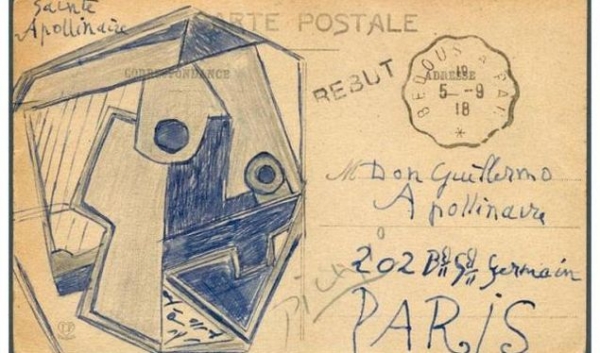 Sainte
Apollinaire
CARTE POSTALE
CORRESPONDANCE
REBUT
BEDOUS A PAU
ADRESSE
19
5-9
18
*
M Don Guillermo
Apollinaire
202 Bd St Germain
PARIS
PICASSO